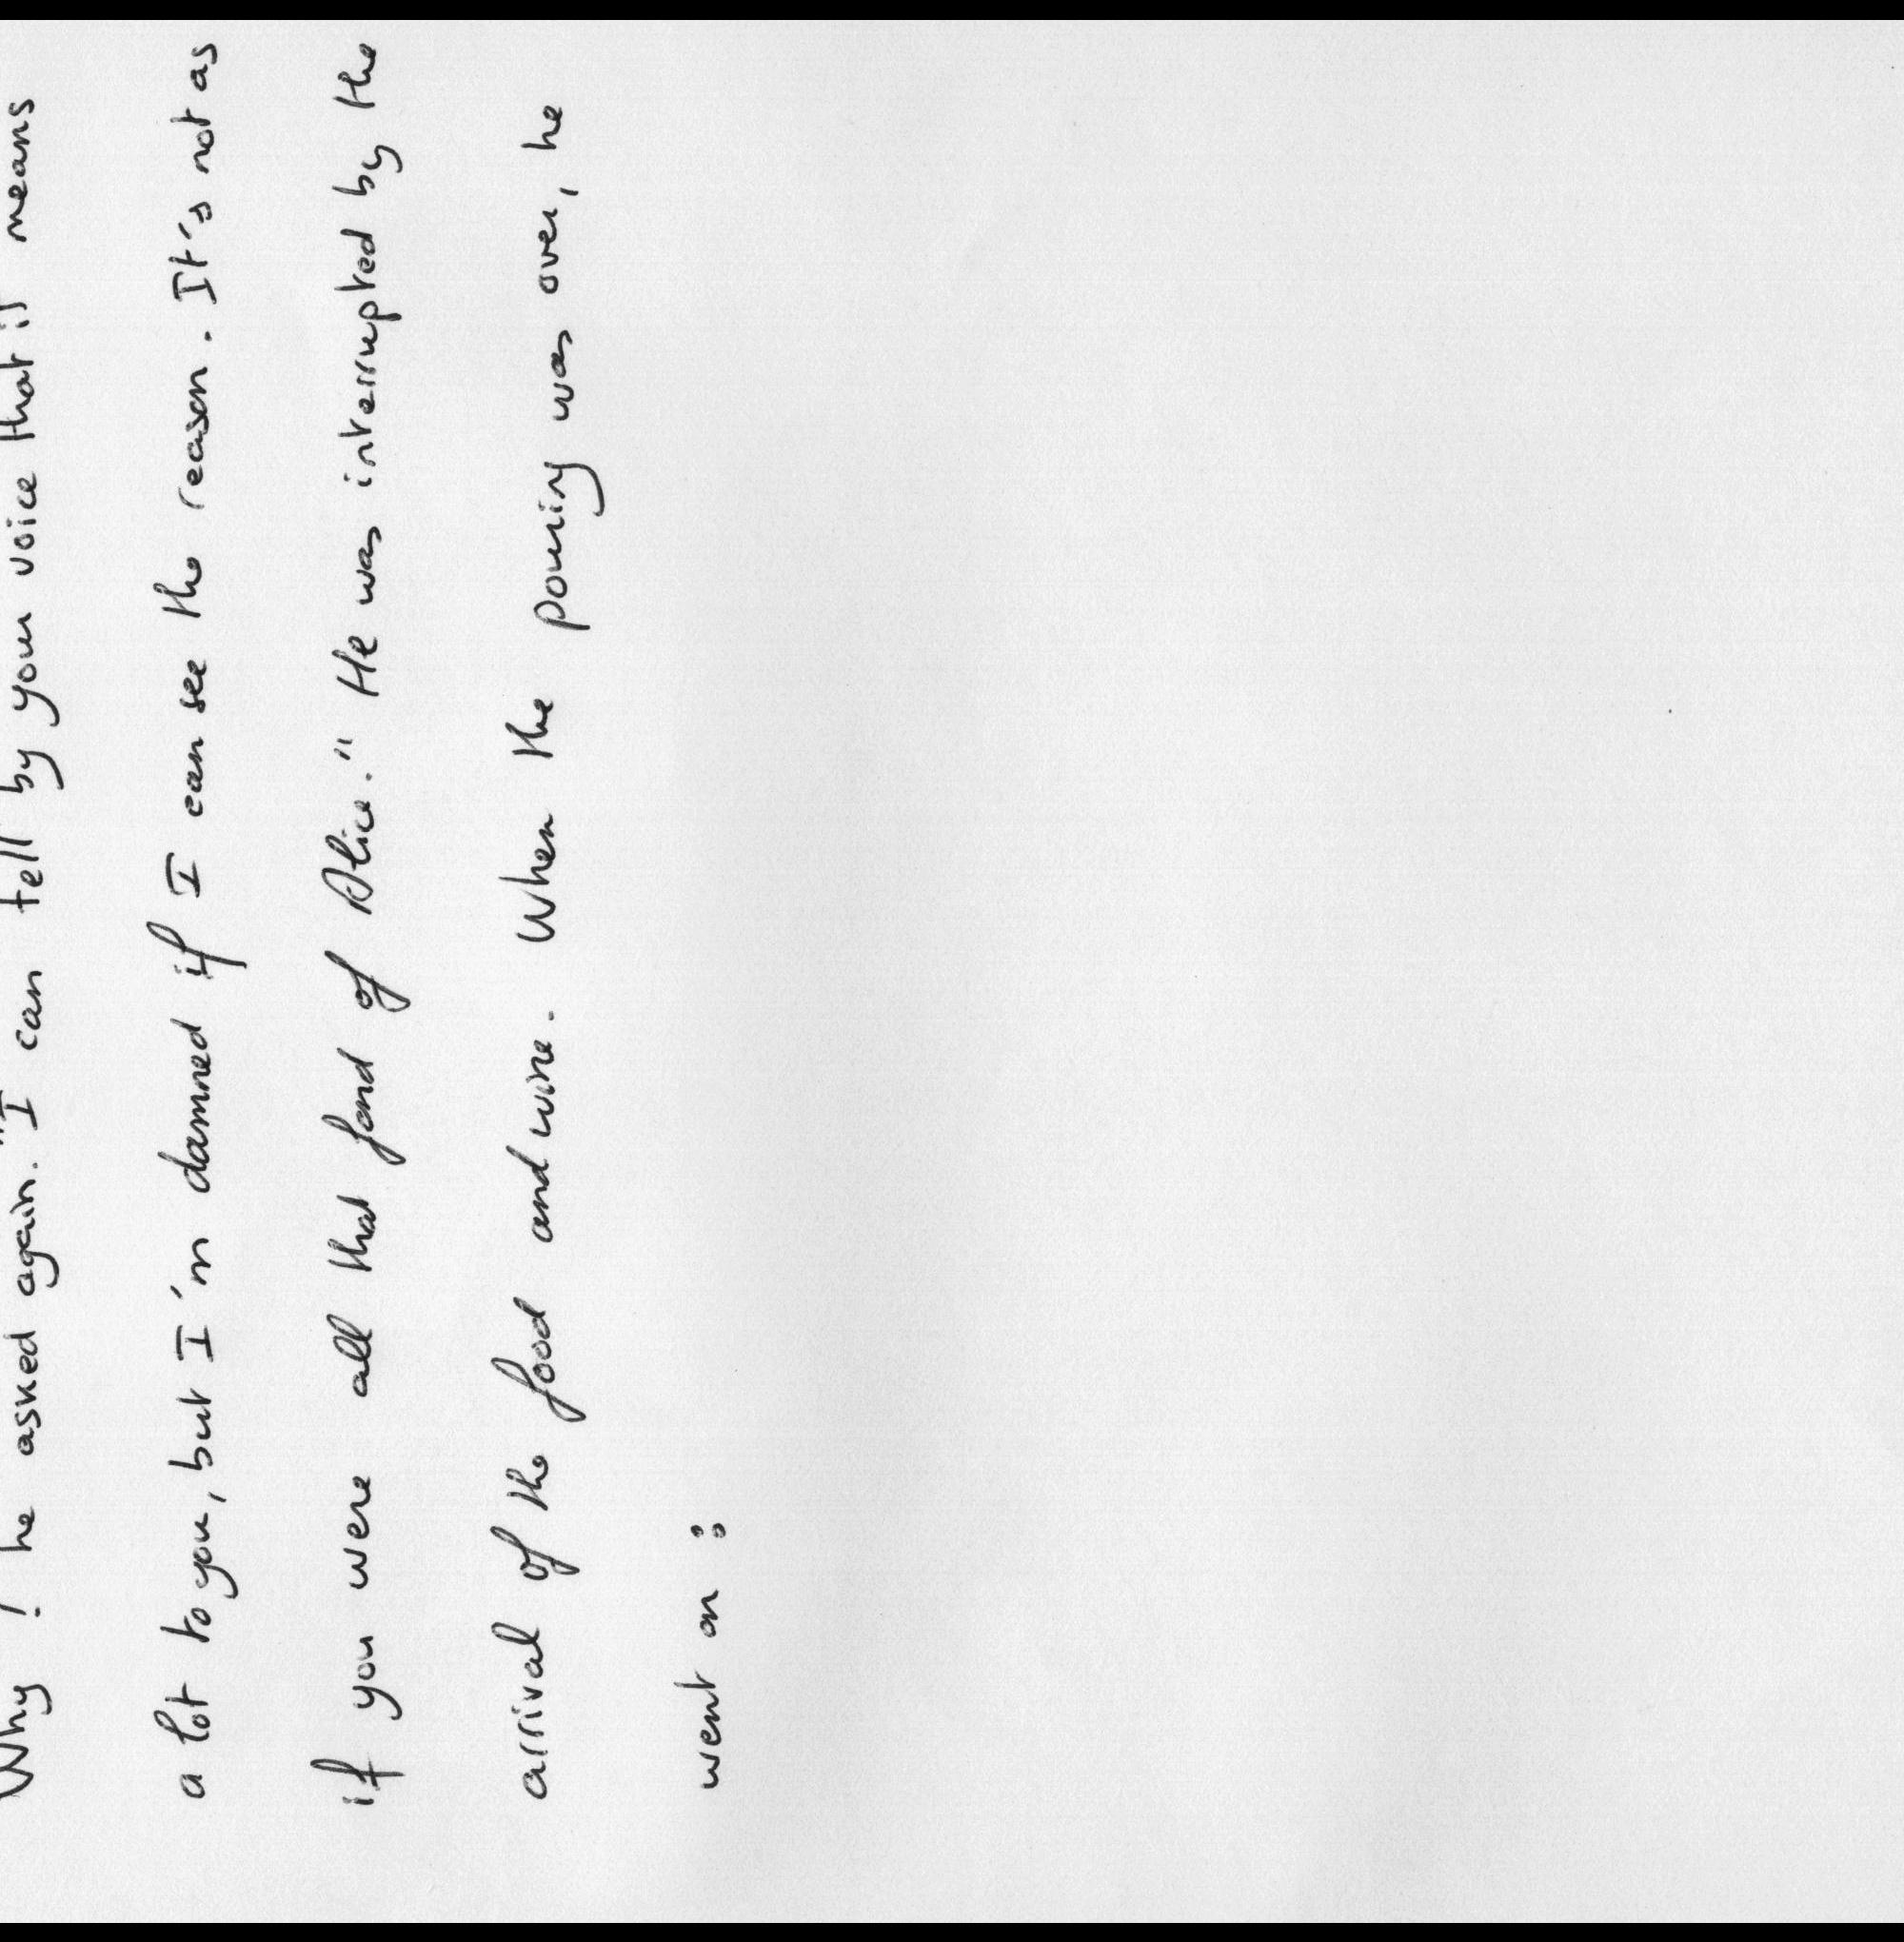 Why ? he asked again. "I can tell by your voice that it means
a lot to you, but I'm damned if I can see the reason. It's not as
if you were all that fond of Alice." He was interrupted by the
arrival of the food and wine. When the pouring was over, he
went on :